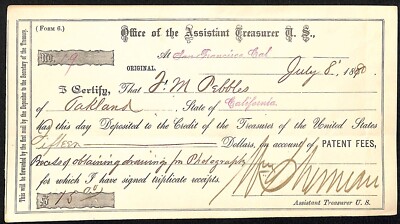 (Form 6.)
Office of the Assistant Treasurer U. S.,
At San Francisco Cal
No. 9
ORIGINAL.
July 8, 1880
I Certify, That F. M. Pebbles
of Oakland State of California
has this day Deposited to the Credit of the Treasurer of the United States
Fifteen Dollars, on account of PATENT FEES,
of obtaining drawing for Photography
for which I have signed triplicate receipts.
$ 15.00
Wm Sherman
Assistant Treasurer U. S.
This will be forwarded by the first mail by the Depositor to the Secretary of the Treasury.